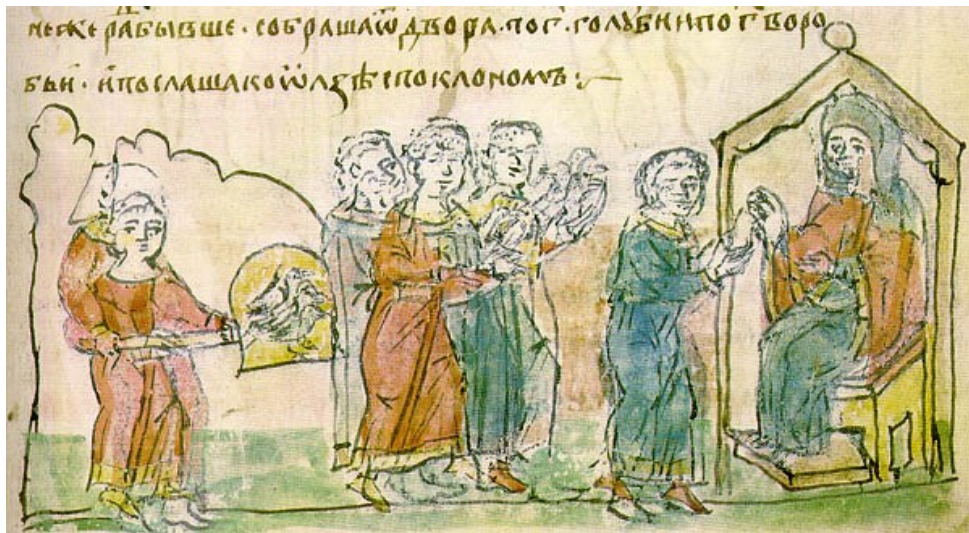 же ра бывше · собраша ѿ двора · по · г · голуби и по г воро
бьи · и послаша ко ѡлзѣ с поклономъ :~